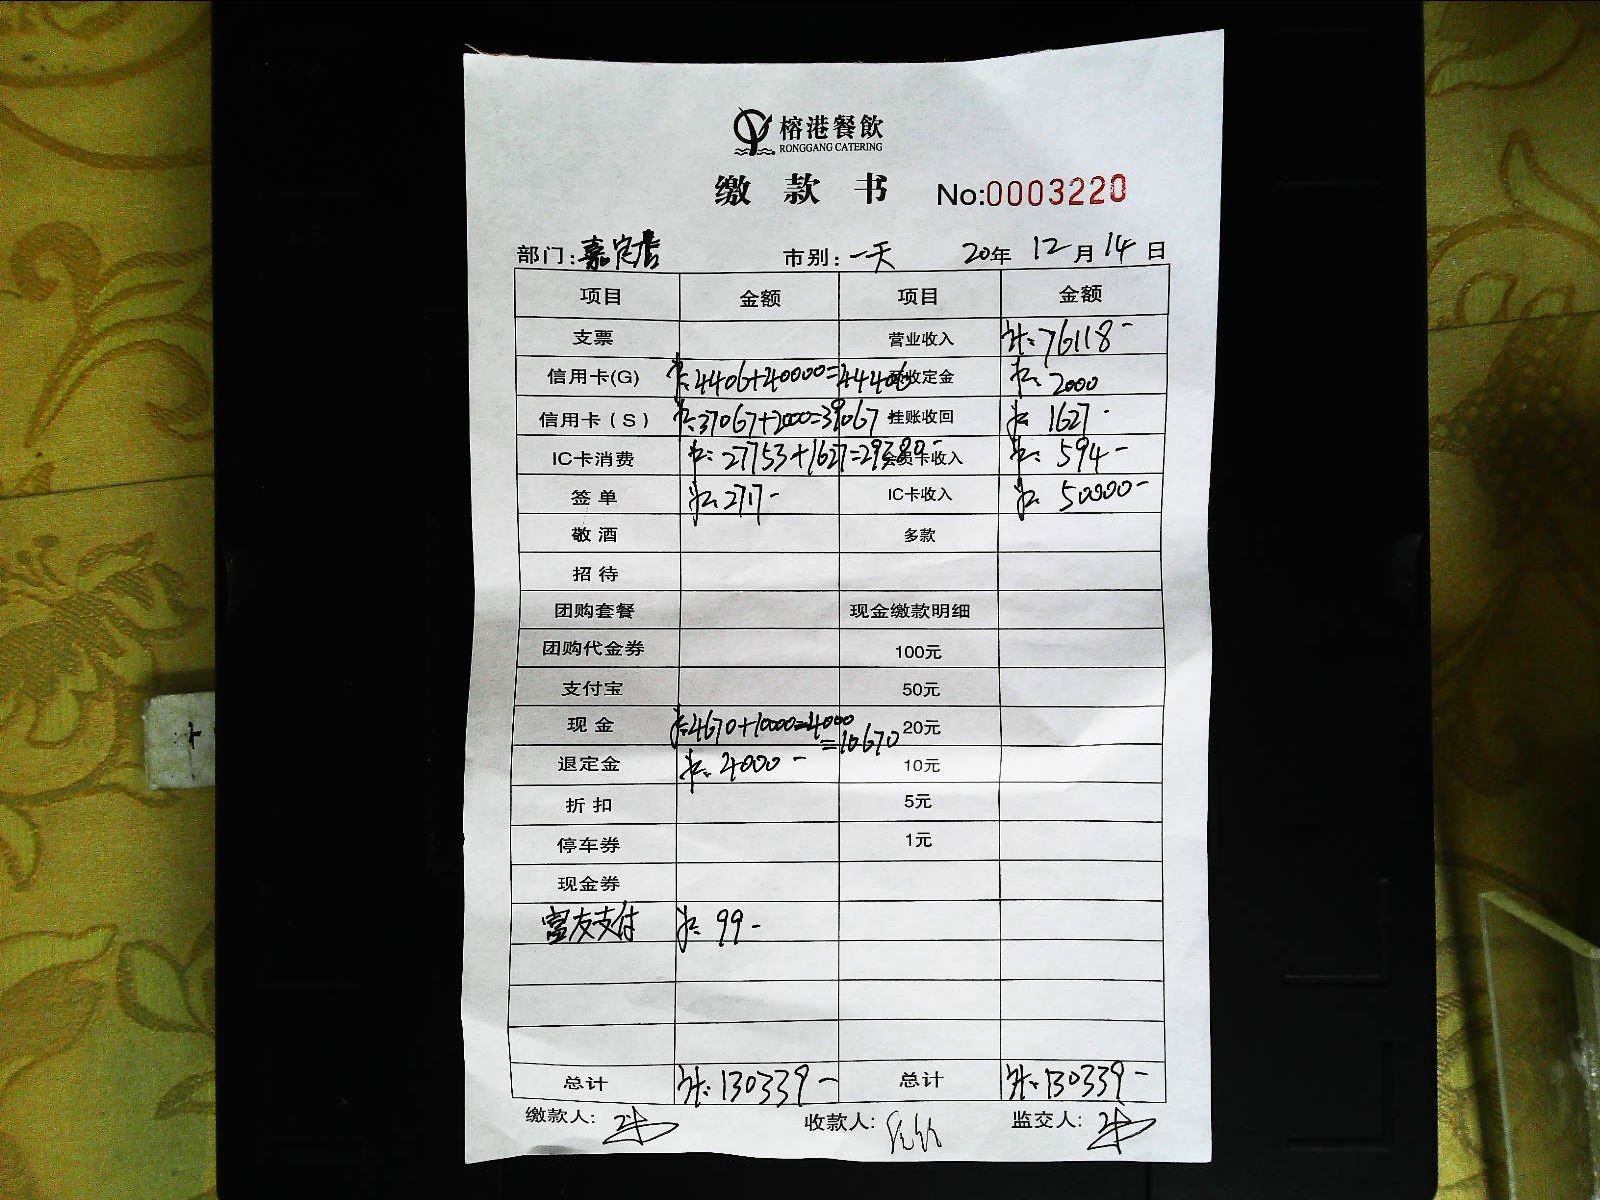 榕港餐飲
RONGGANG CATERING
缴款书 No:0003220
部门:嘉定店 市别:一天 20年12月14日
项目 金额 项目 金额
支票 营业收入 计:76118-
信用卡(G) 4406+40000=44406 预收定金 2000
信用卡(S) 37067+2000=39067 挂账收回 1627-
IC卡消费 27753+1627=29380- 会员卡收入 594-
签单 2717- IC卡收入 50000-
敬酒 多款
招待
团购套餐 现金缴款明细
团购代金券 100元
支付宝 50元
现金 4670+10000=4000 20元
=10670
退定金 4000- 10元
折扣 5元
停车券 1元
现金券
富友支付 99-
总计 计:130339- 总计 计:130339-
缴款人: 收款人: 监交人: